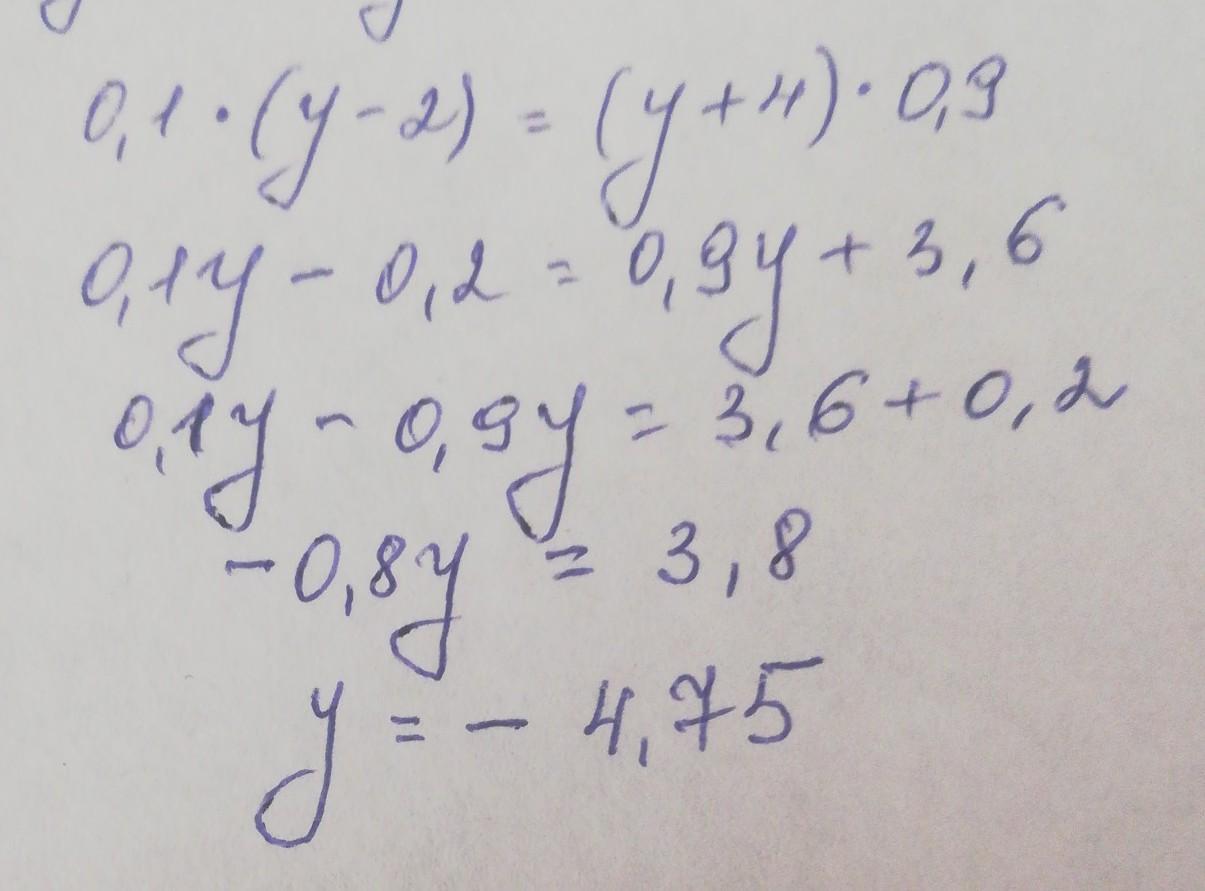 0,1 · (y - 2) = (y + 4) · 0,9
0,1y - 0,2 = 0,9y + 3,6
0,1y - 0,9y = 3,6 + 0,2
-0,8y = 3,8
y = - 4,75